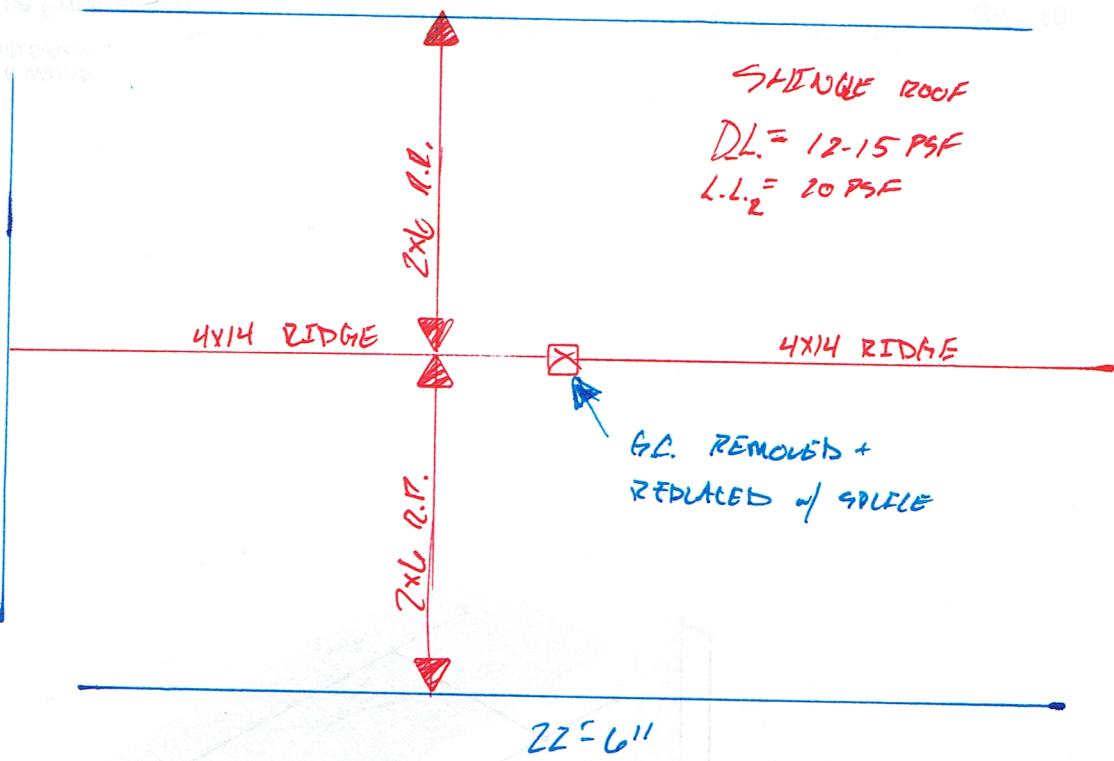 SHINGLE ROOF
D.L. = 12-15 PSF
L.L.R = 20 PSF
2x6 R.R.
4x14 RIDGE
4x14 RIDGE
G.C. REMOVED +
REPLACED w/ SPLICE
2x6 R.R.
22'-6"